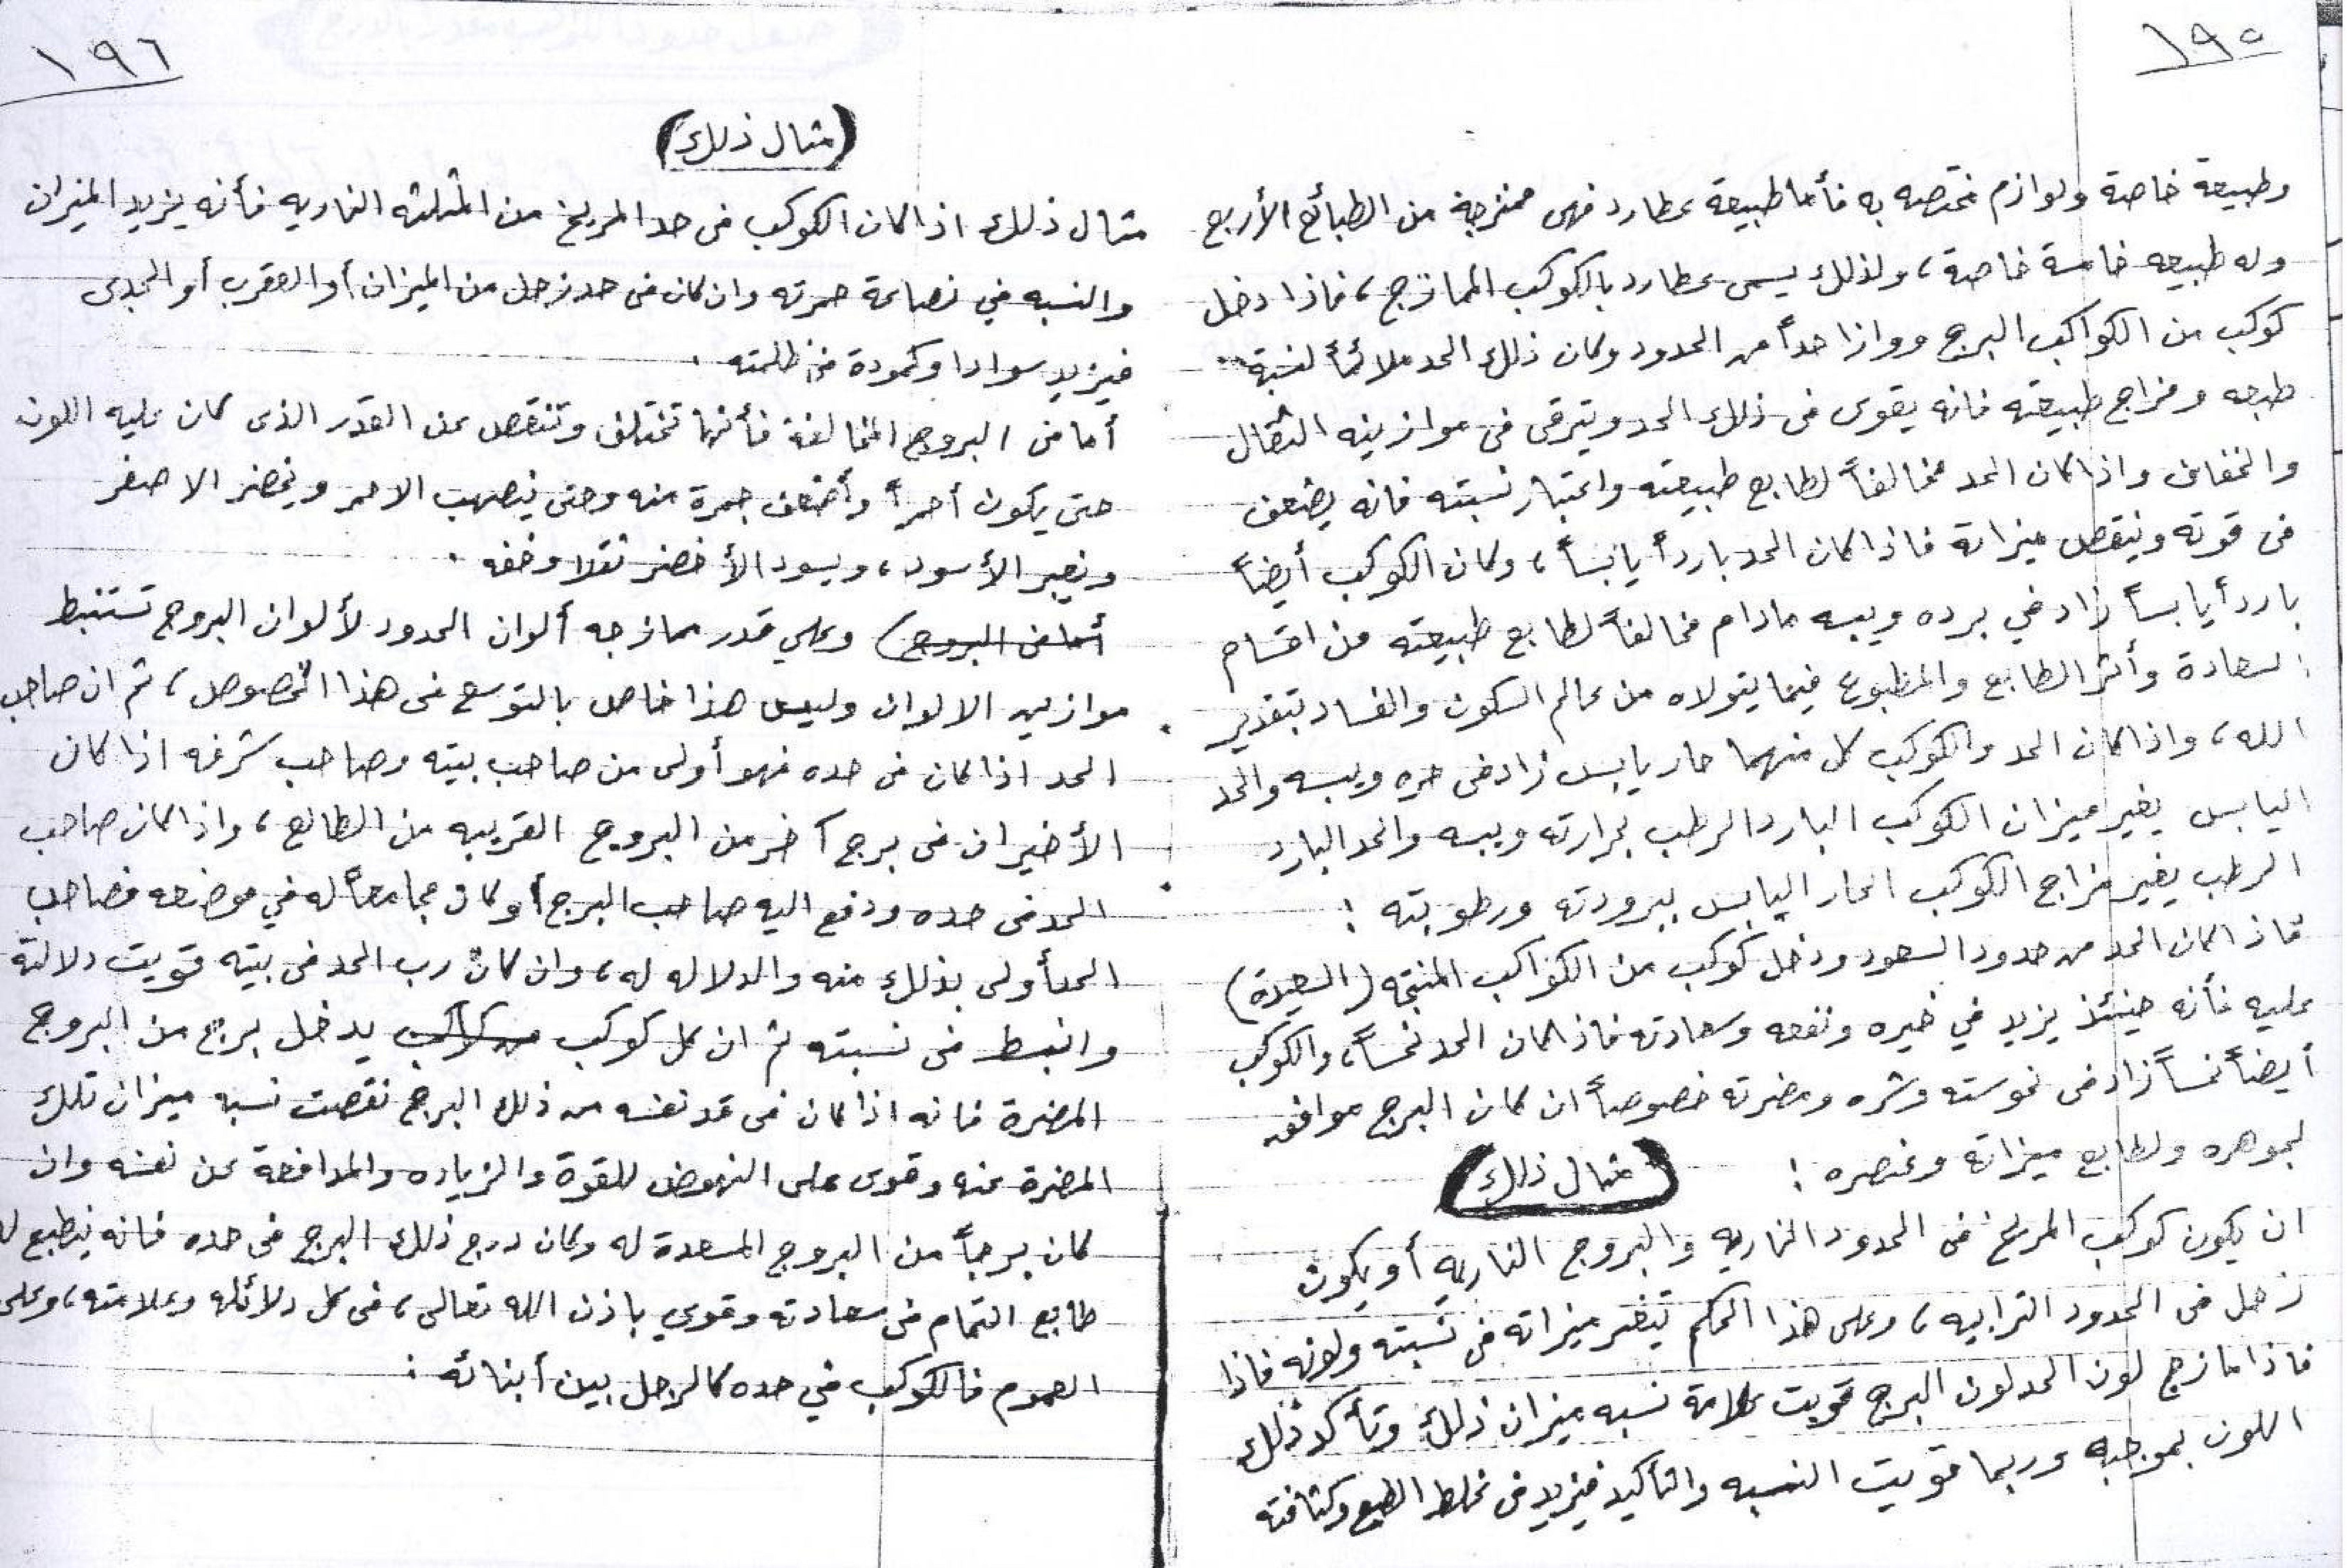 ١٩٥
وطبيعة خاصة ولوازم مختصه به فأما طبيعة عطارد فهى ممتزجة من الطبائع الأربع
وله طبيعه خامسة خاصة، ولذلك يسمى عطارد بالكوكب الممازج، فاذا دخل
كوكب من الكواكب البرج ووازا حداً من الحدود وكان ذلك الحد ملائماً لنسبة
طبعه ومزاج طبيعته فانه يقوى فى ذلك الحد ويترقى فى موازينه الثقال
والخفاف واذا كان الحد مخالفاً لطابع طبيعته واعتبار نسبته فانه يضعف
فى قوته وينقص ميزانه فاذا كان الحد بارداً يابساً، وكان الكوكب أيضاً
بارداً يابساً زاد في برده ويبسه مادام مخالفاً لطابع طبيعته من اقسام
السعادة وأثر الطابع والمطبوع فيما يتولاه من عالم السكون والفساد بتقدير
الله، واذا كان الحد والكوكب كل منهما حار يابس زاد فى حره ويبسه والحد
اليابس يغير ميزان الكوكب البارد الرطب بحرارته ويبسه والحد البارد
الرطب يغير مزاج الكوكب الحار اليابس ببرودته ورطوبته :
فاذا كان الحد من حدود السعود ودخل كوكب من الكواكب المنتجه (السعيدة)
عليه فأنه حينئذ يزيد في خيره ونفعه وسعادته فاذا كان الحد نحساً، والكوكب
أيضاً نحساً زاد فى نحوسته وشره ومضرته خصوصاً ان كان البرج موافق
لجوهره ولطابع ميزانه وعنصره :
(مثال ذلك)
ان يكون كوكب المريخ فى الحدود الناريه والبروج الناريه أو يكون
زحل فى الحدود الترابيه، وعلى هذا الحكم يتغير ميزانه فى نسبته ولونه فاذا
فاذا مازج لون الحد لون البرج قويت علامة نسبه ميزان ذلك وتأكد ذلك
اللون بموجبه وربما قويت النسبه والتأكيد فيزيد فى غلظ الطبع وكثافته
١٩٦
(مثال ذلك)
مثال ذلك اذا كان الكوكب فى حد المريخ من المثلثه الناريه فأنه يزيد الميزان
والنسبه في نصاعة حمرته وان كان فى حد زحل من الميزان أو العقرب أو الجدى
فيزيد سوادا وكمودة فى ظلمته .
أما فى البروج المخالفة فأنها تختلف وتنقص عن القدر الذى كان عليه اللون
حتى يكون أحمراً وأضعف حمرة منه وحتى يصهب الاحمر ويخضر الاصفر
ويغبر الأسود، ويسود الأخضر ثقلا وخفه .
أما فى البروج) وعلي قدر ممازجه ألوان الحدود لألوان البروج تستنبط
موازين الالوان وليس هذا خاص بالتوسع فى هذا الخصوص، ثم ان صاحب
الحد اذا كان فى حده فهو أولى من صاحب بيته وصاحب شرفه اذا كان
الأخيران فى برج آخر من البروج القريبه من الطالع، واذا كان صاحب
الحد فى حده ودفع اليه صاحب البرج أو كان مجامعاً له في موضعه فصاحب
الحد أولى بذلك منه والدلاله له، وان كان رب الحد فى بيته قويت دلالته
وانبسط فى نسبته ثم ان كل كوكب يدخل برج من البروج
المضرة فانه اذا كان فى قد نفسه من ذلك البرج نقصت نسبه ميزان تلك
المضرة عنه وقوى على النهوض للقوة والزياده والمدافعة عن نفسه وان
كان برجاً من البروج المسعدة له وكان درج ذلك البرج فى حده فانه ينطبع له
طابع التمام فى سعادته وقوي باذن الله تعالى، فى كل دلائله وعلامته، وعلى
العموم فالكوكب في حده كالرجل بين أبنائه :